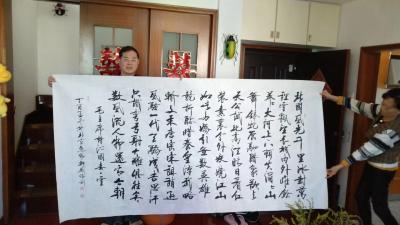 北国风光千里冰封万
里雪飘望长城内外惟余
莽莽大河上下顿失滔滔山
舞银蛇原驰蜡象欲与
天公试比高须晴日看红
装素裹分外妖娆江山
如此多娇引无数英雄
竞折腰惜秦皇汉武略
输文采唐宗宋祖稍逊
风骚一代天骄成吉思汗
只识弯弓射大雕俱往矣
数风流人物还看今朝
毛主席 沁园春雪
丁酉年